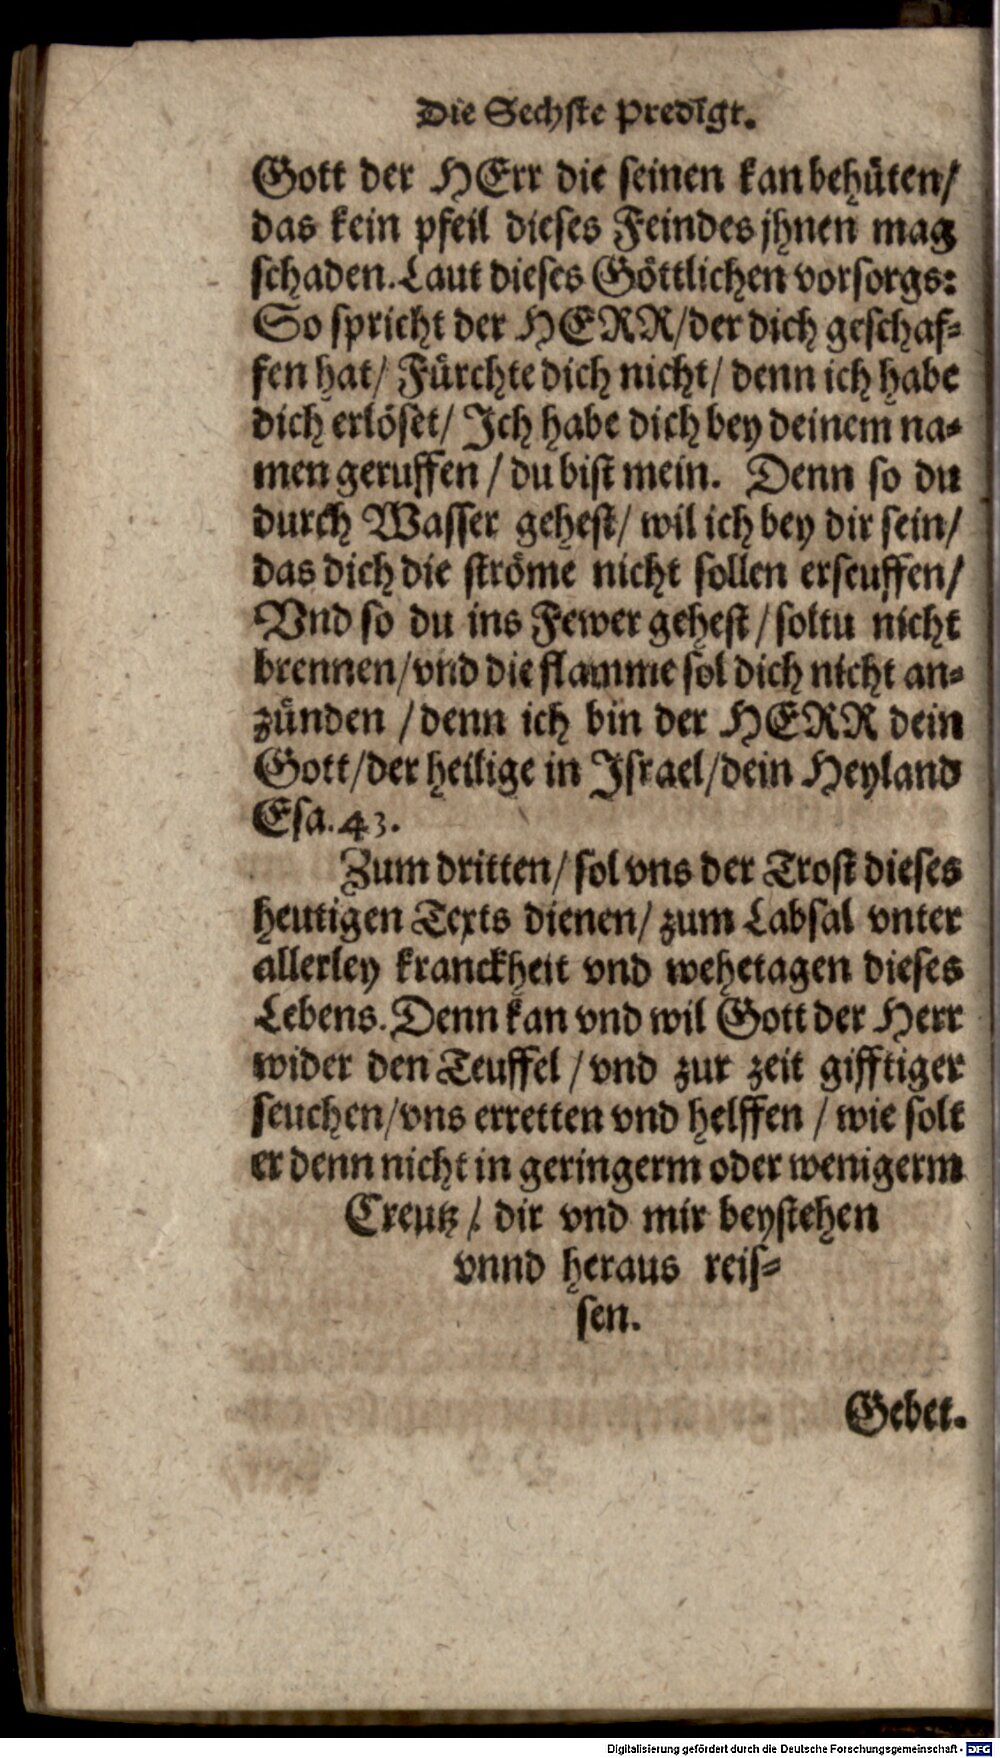 Die Sechste Predigt.
Gott der HErr die seinen kan behüten/
das kein pfeil dieses Feindes jhnen mag
schaden. Laut dieses Göttlichen vorsorgs:
So spricht der HERR/der dich geschaf-
fen hat/ Fürchte dich nicht/ denn ich habe
dich erlöset/ Ich habe dich bey deinem na-
men geruffen / du bist mein. Denn so du
durch Wasser gehest/ wil ich bey dir sein/
das dich die ströme nicht sollen erseuffen/
Vnd so du ins Fewer gehest / soltu nicht
brennen/vnd die flamme sol dich nicht an-
zünden / denn ich bin der HERR dein
Gott/der heilige in Israel/dein Heyland
Esa. 43.
Zum dritten/ sol vns der Trost dieses
heutigen Texts dienen/ zum Labsal vnter
allerley kranckheit vnd wehetagen dieses
Lebens. Denn kan vnd wil Gott der Herr
wider den Teuffel / vnd zur zeit gifftiger
seuchen/vns erretten vnd helffen / wie solt
er denn nicht in geringerm oder wenigerm
Creutz / dir vnd mir beystehen
vnnd heraus reis-
sen.
Gebet.
Digitalisierung gefördert durch die Deutsche Forschungsgemeinschaft - DFG